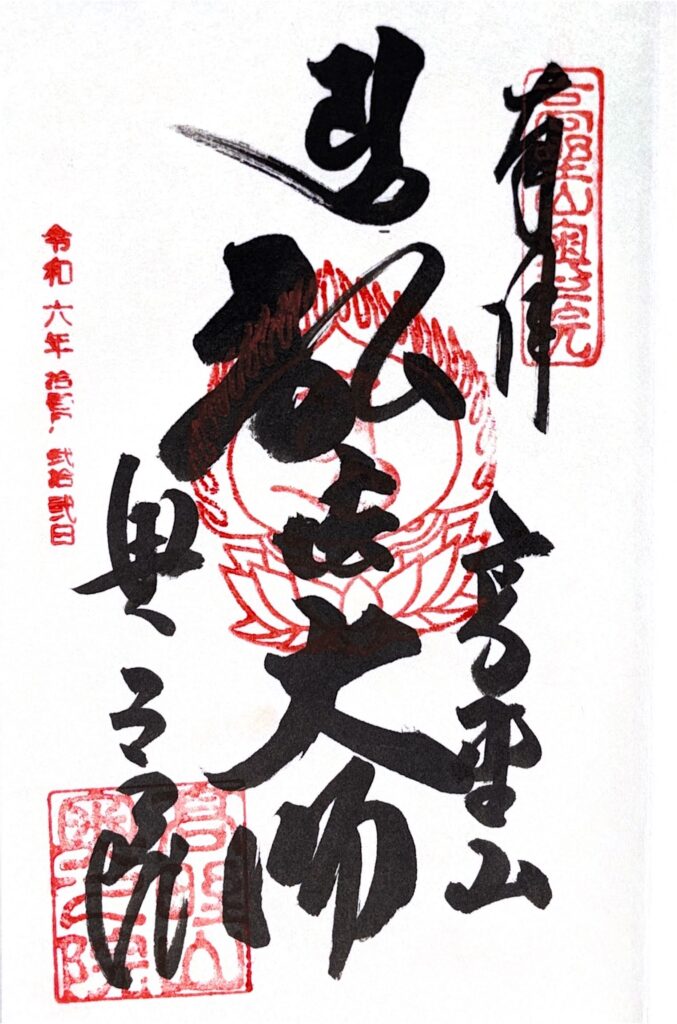 高野山奥之院
奉拝
高野山
弘法大師
奥之院
高野山
奥之院
令和六年 弐拾弐日